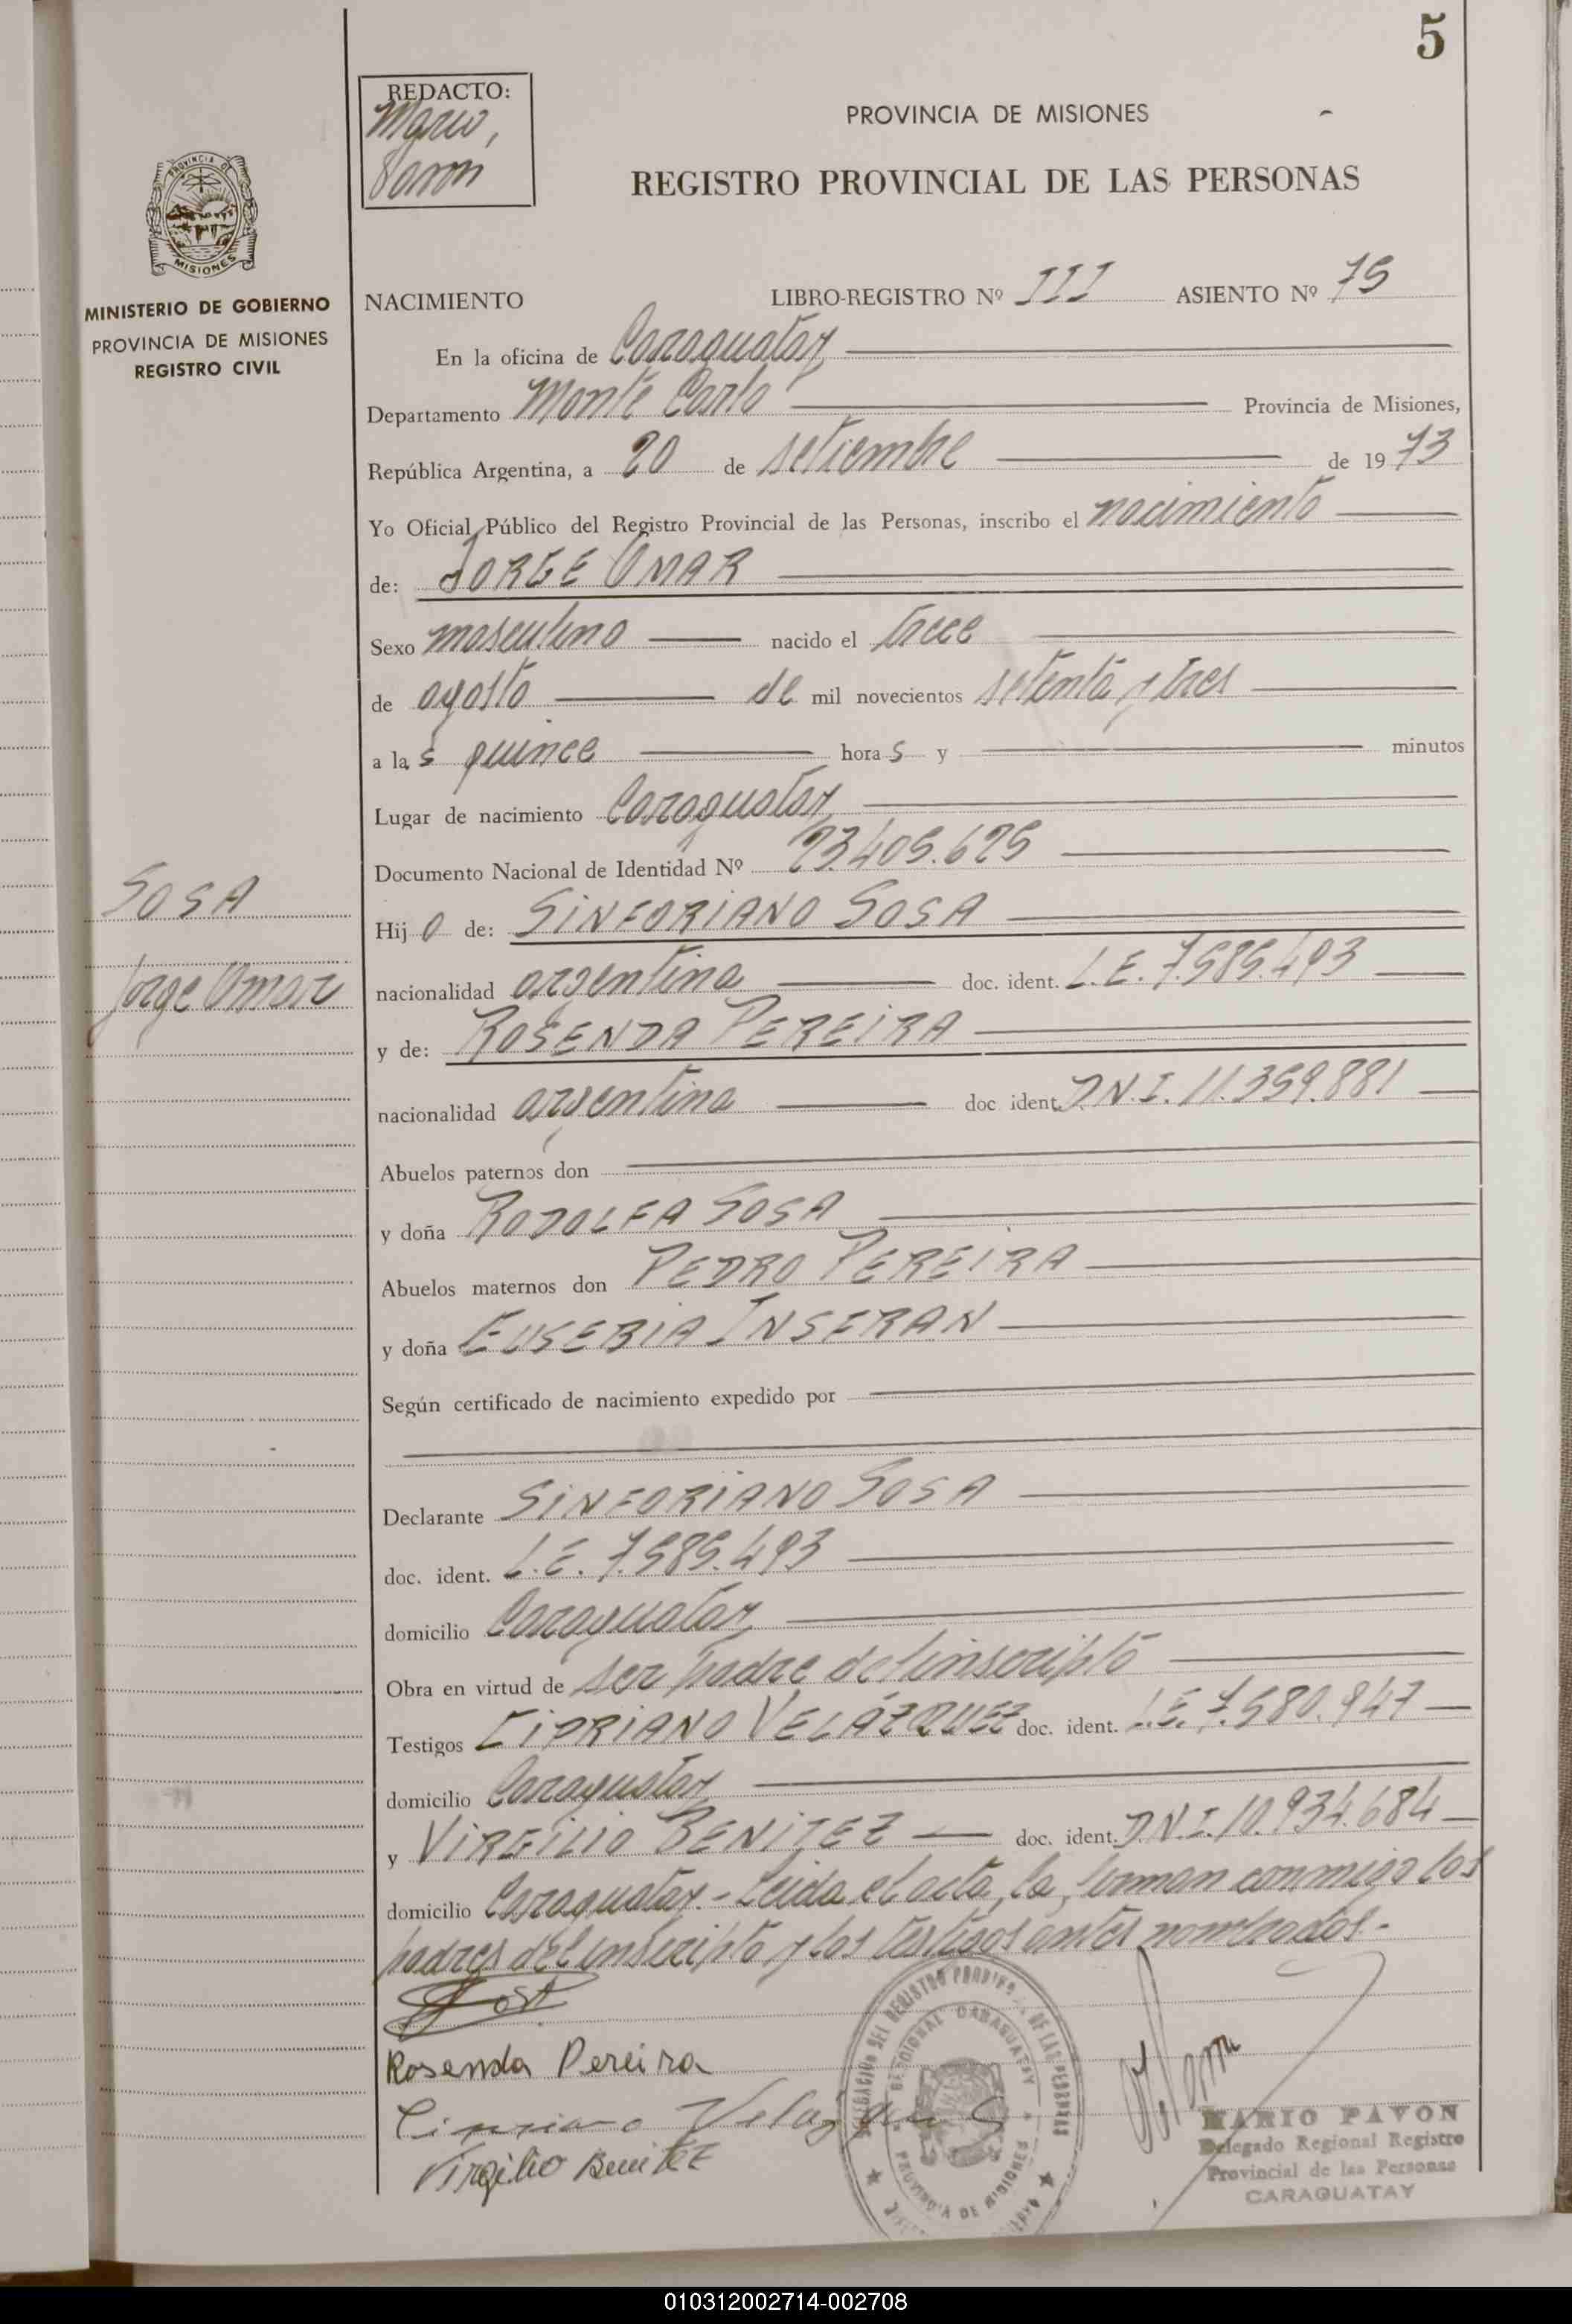 5
REDACTO:
Mario
Pavon
PROVINCIA DE MISIONES
REGISTRO PROVINCIAL DE LAS PERSONAS
PROVINCIA DE
MISIONES
MINISTERIO DE GOBIERNO
PROVINCIA DE MISIONES
REGISTRO CIVIL
NACIMIENTO LIBRO-REGISTRO Nº III ASIENTO Nº 75
En la oficina de Caraguatay
Departamento Monte Carlo Provincia de Misiones,
República Argentina, a 20 de setiembre de 1973
Yo Oficial Público del Registro Provincial de las Personas, inscribo el nacimiento
de: JORGE OMAR
Sexo masculino nacido el trece
de agosto de mil novecientos setenta y tres
a las quince horas y minutos
Lugar de nacimiento Caraguatay
Documento Nacional de Identidad Nº 23.405.625
SOSA
Jorge Omar
Hijo de: SINFORIANO SOSA
nacionalidad argentina doc. ident. L.E. 7.585.493
y de: ROSENDA PEREIRA
nacionalidad argentina doc ident. D.N.I. 11.359.881
Abuelos paternos don
y doña RODOLFA SOSA
Abuelos maternos don PEDRO PEREIRA
y doña EUSEBIA INSFRAN
Según certificado de nacimiento expedido por
Declarante SINFORIANO SOSA
doc. ident. L.E. 7.585.493
domicilio Caraguatay
Obra en virtud de ser padre del inscripto
Testigos CIPRIANO VELÁZQUEZ doc. ident. L.E. 7.580.947
domicilio Caraguatay
y VIRGILIO BENITEZ doc. ident. D.N.I. 10.934.684
domicilio Caraguatay.- Leida el acta, la firman conmigo los
padres del inscripto y los testigos antes nombrados.-
Rosenda Pereira
Cipriano Velazquez
Virgilio Benitez
DELEGACION DEL REGISTRO DE LAS PERSONAS
REGIONAL CARAGUATAY
PROVINCIA DE MISIONES
MARIO PAVON
Delegado Regional Registro
Provincial de las Personas
CARAGUATAY
010312002714-002708